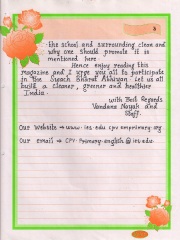 the school and surrounding clean and
why one should promote it is
mentioned here
Hence enjoy reading this
magazine and I urge you all to participate
in the Swach Bharat Abhiyan. Let us all
build a cleaner, greener and healthier
India.
with Best Regards
Vandana Nayak and
Staff.
Our Website → www.ies.edu
Our email → primary.english @ ies.edu